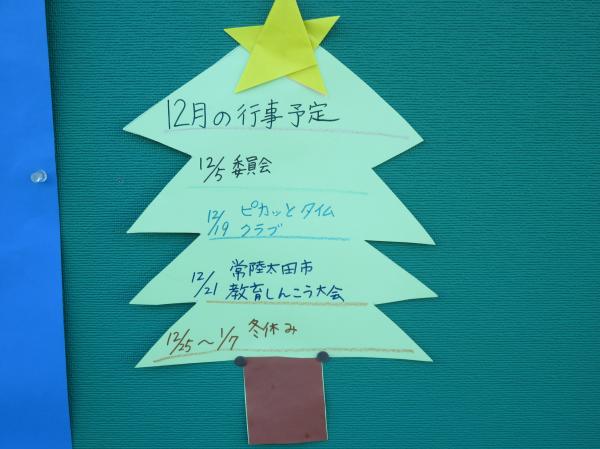 12月の行事予定
12/5 委員会
12/19 ピカッとタイム
クラブ
12/21 常陸太田市
教育しんこう大会
12/25～1/7 冬休み